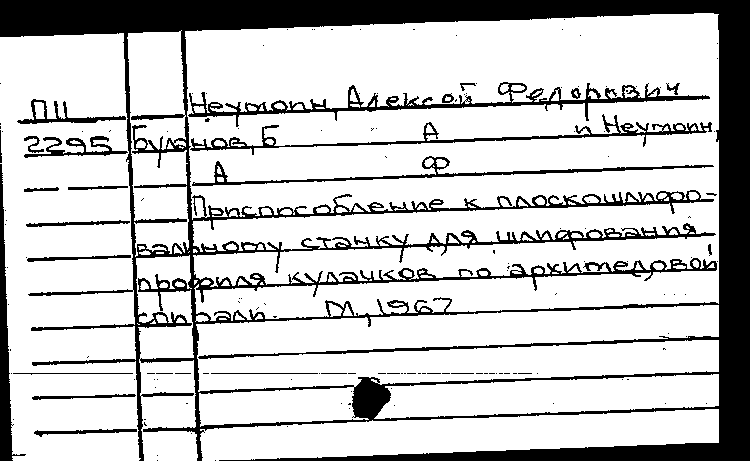 ПII Неутоłин, Алексей Федорович
2295 Буланов, Б А и Неутолин,
А Ф
Приспособление к плоскошлифо-
вальному станку для шлифования
профиля кулачков по архимедовой
спирали. М., 1967